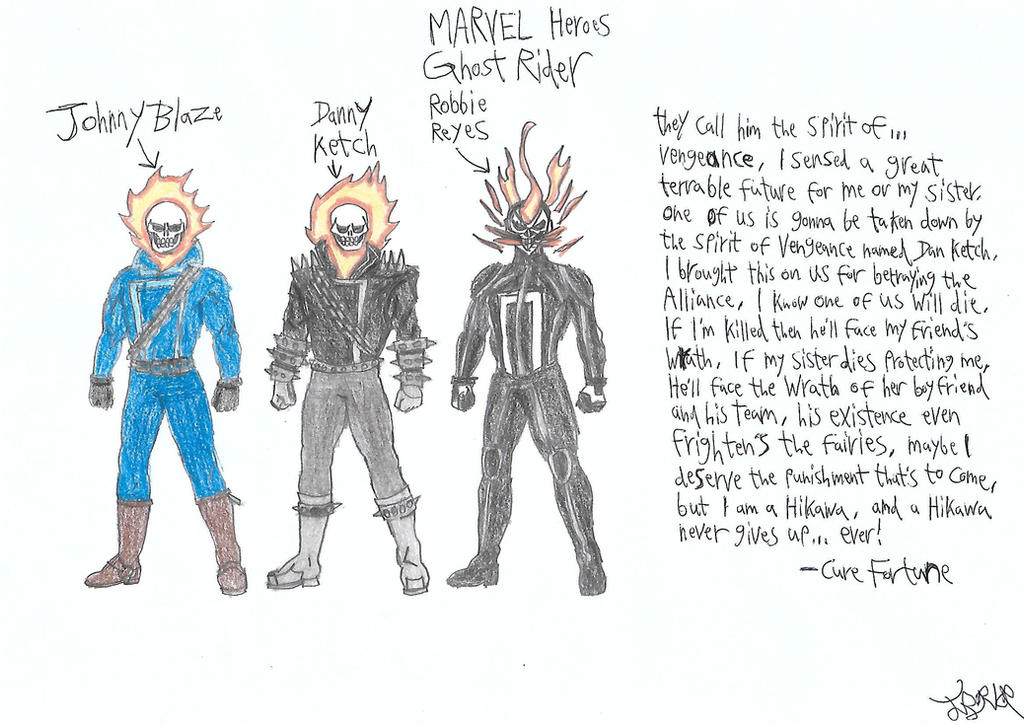 MARVEL Heroes
Ghost Rider
Johnny Blaze
Danny
Ketch
Robbie
Reyes
they call him the Spirit of...
Vengeance, I sensed a great
terrable future for me or my sister.
one of us is gonna be taken down by
the Spirit of Vengeance named Dan Ketch,
I brought this on us for betraying the
Alliance, I know one of us will die.
If I'm killed then he'll face my friend's
wrath, If my sister dies Protecting me,
He'll face the Wrath of her boyfriend
and his team, his existence even
frighten's the fairies, maybe I
deserve the punishment that's to come,
but I am a Hikawa, and a Hikawa
never gives up... ever!
-Cure Fortune